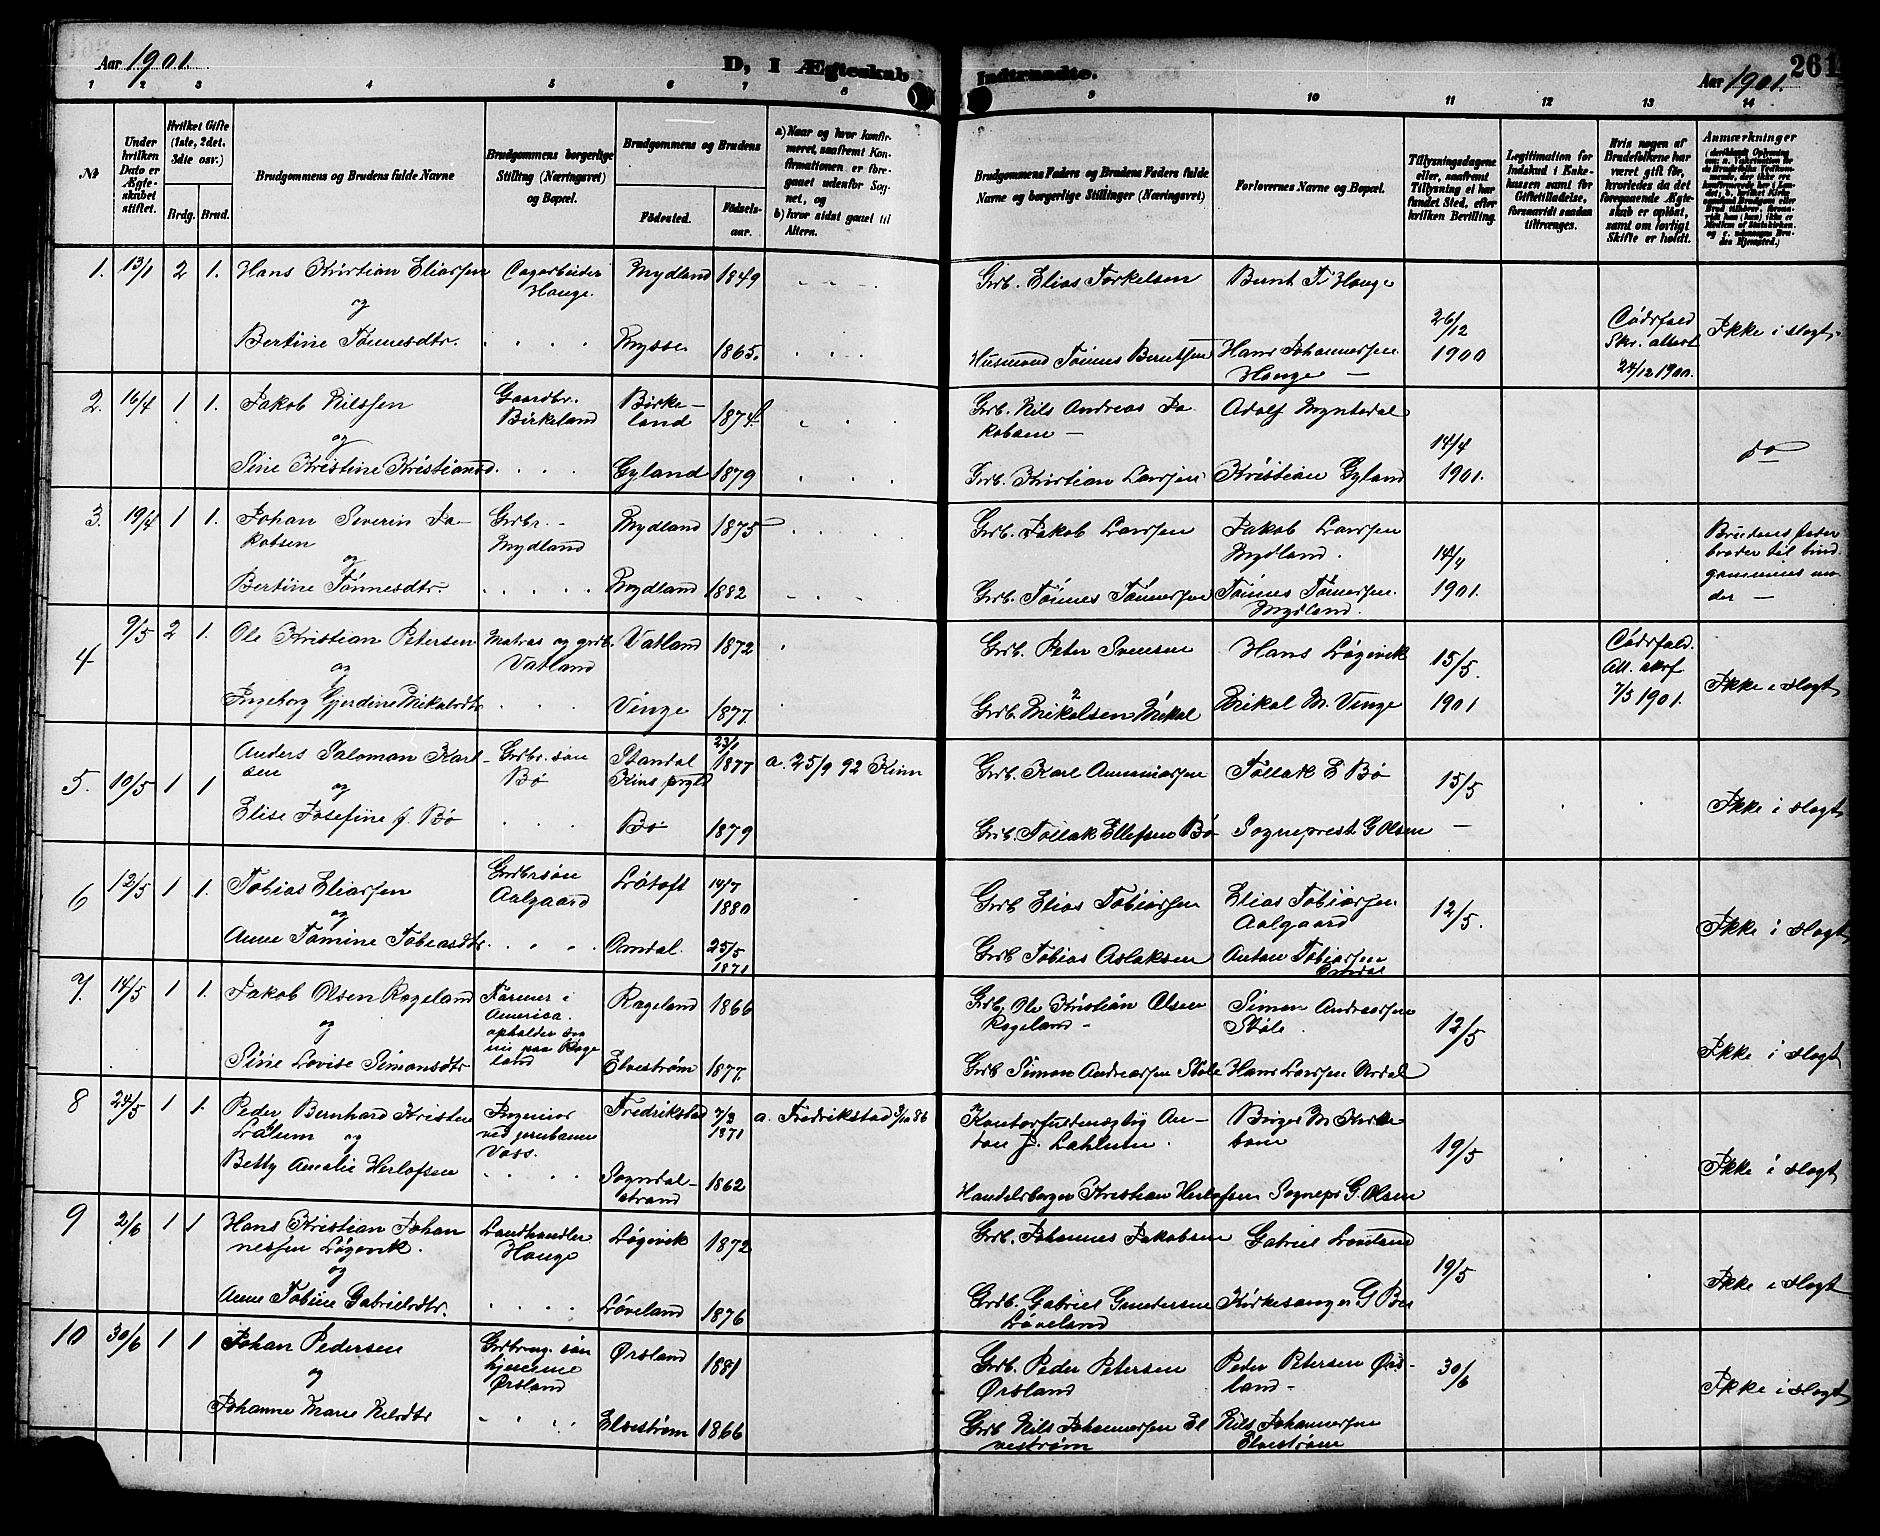 Aar 1901.
D, I Ægteskab Indtraadte.
Aar 1901.
261
1 2 3 4 5 6 7 8 9 10 11 12 13 14
No
Under hvilken Dato er Ægteskabet stiftet.
Hvilket Gifte (1ste, 2det, 3die osv.)
Brdg. Brud.
Brudgommens og Brudens fulde Navne
Brudgommens borgerlige Stilling (Næringsvei) og Bopæl.
Brudgommens og Brudens
Fødested. Fødselsaar.
a) Naar og hvor konfirmeret, saafremt Konfirmationen er foregaaet udenfor Sognet, og
b) hvor sidst gaaet til Alters.
Brudgommens Faders og Brudens Faders fulde Navne og borgerlige Stillinger (Næringsvei)
Forlovernes Navne og Bopæl.
Tillysningsdagene eller, saafremt Tillysning ei har fundet Sted, efter hvilken Bevilling.
Legitimation for Indskud i Enkekassen samt for Giftetilladelse, forsaavidt saadan tiltrænges.
Hvis nogen af Brudefolkene har været gift før, hvorledes da det foregaaende Ægteskab er opløst, samt om lovligt Skifte er holdt.
Anmærkninger
1. 13/1 2 1. Hans Kristian Eliassen
og
Bertine Tønnesdtr.
Hauge.
Mydland 1849
Mysse 1865.
Grb. Elias Torkelsen
Husmand Tønnes Berntsen
Bernt T. Hauge
Hans Johannessen
Hauge
26/12
1900
24/12 1900.
Ikke i slægt.
2. 16/4 1 1. Jakob Nilssen
og
Sine Kristine Kristiansd.
Gaardbr.
Birkeland
Birkeland 1874
Gyland 1879
Grb. Nils Andreas Jakobsen
Grb. Kristian Larssen
Adolf
Kristian Gyland
14/4
1901.
do
3. 19/4 1 1. Johan Severin Jakobsen
og
Bertine Tønnesdtr.
Grdbr.
Mydland
Mydland 1875
Mydland 1882
Grb. Jakob Larssen
Grb. Tønnes Tønnessen
Jakob Larssen
Mydland.
Tønnes Tønnessen
Mydland.
14/4
1901.
Brudens fader
broder til brudgommens moder
4 9/5 2 1. Ole Kristian Petersen
og
Ingeborg Gjerdine Mikalsdtr
Matros og grdb.
Vatland
Vatland 1872
Vinge 1877.
Grb. Peter Svensen
Grb. Mikalsen Mikal
Hans Løgevik
Mikal M. Vinge
15/5.
1901
7/5 1901.
Ikke i slægt
5. 10/5 1 1 Anders Salomon Karlsen
og
Elise Josefine f. Bø
Grdbr. søn
Bø
Standal
Kins prgld
23/1
1877
Bø 1879
a. 25/9 92 Kinn
Grb. Karl Ananiassen
Grb. Tollak Ellefsen Bø
Tollak E Bø
Sogneprest G Olsen
15/5
Ikke i slægt
6 12/5 1 1. Tobias Eliassen
og
Anne Tomine Tobiasdtr.
Grdbrsøn
Aalgaard
Løtoft
14/7
1880
Omdal.
25/5
1871
Grb Elias Tobiassen
Grb Tobias Aslaksen
Elias Tobiassen
Aalgaard
Anton Tobiassen
Omdal
12/5.
Ikke i slægt
7. 14/5 1 1. Jakob Olsen Rageland
og
Sine Lovise Simonsdtr
Farmer i
America.
opholder sig
nu paa Rageland
Rageland 1866
Elvestrøm 1877.
Grb. Ole Kristian Olsen
Rageland
Grb Simon Andreassen Støle
Simon Andreassen
Støle.
Hans Larssen Urdal
12/5
Ikke i slægt
8 24/5 1 1. Peder Bernhard Kristen
og
Betty Amalie Herlofsen
Ingeniør
ved jernbanen
Voss.
Fredrikstad 7/3
1871
Sogndalstrand 1862
a. Fredrikstad 3/10 86
Kontorfuldmægtig Anton J. Lahlum.
Handelsborger Kristian Herlofsen
Birger M
Sognepr G. Olsen
19/5
Ikke i slægt
9 2/6 1 1 Hans Kristian Johannessen Løgevik.
og
Anne Tobine Gabrielsdtr.
Landhandler
Hauge
Løgevik 1872
Løveland 1876
Grb. Johannes Jakobsen
Grdb. Gabriel Gundersen
Løveland
Gabriel Løveland
Kirkesanger G
19/5
Ikke i slægt
10 30/6 1 1 Johan Pedersen
og
Johanne Marie Nilsdtr
Ørsland
Ørsland 1881
Elvestrøm 1866
Grb. Peder Petersen
Ørsland
Grb Nils Johannessen Elvestrøm
Peder Petersen Ørsland
Nils Johannessen
Elvestrøm
30/6
Ikke i slægt